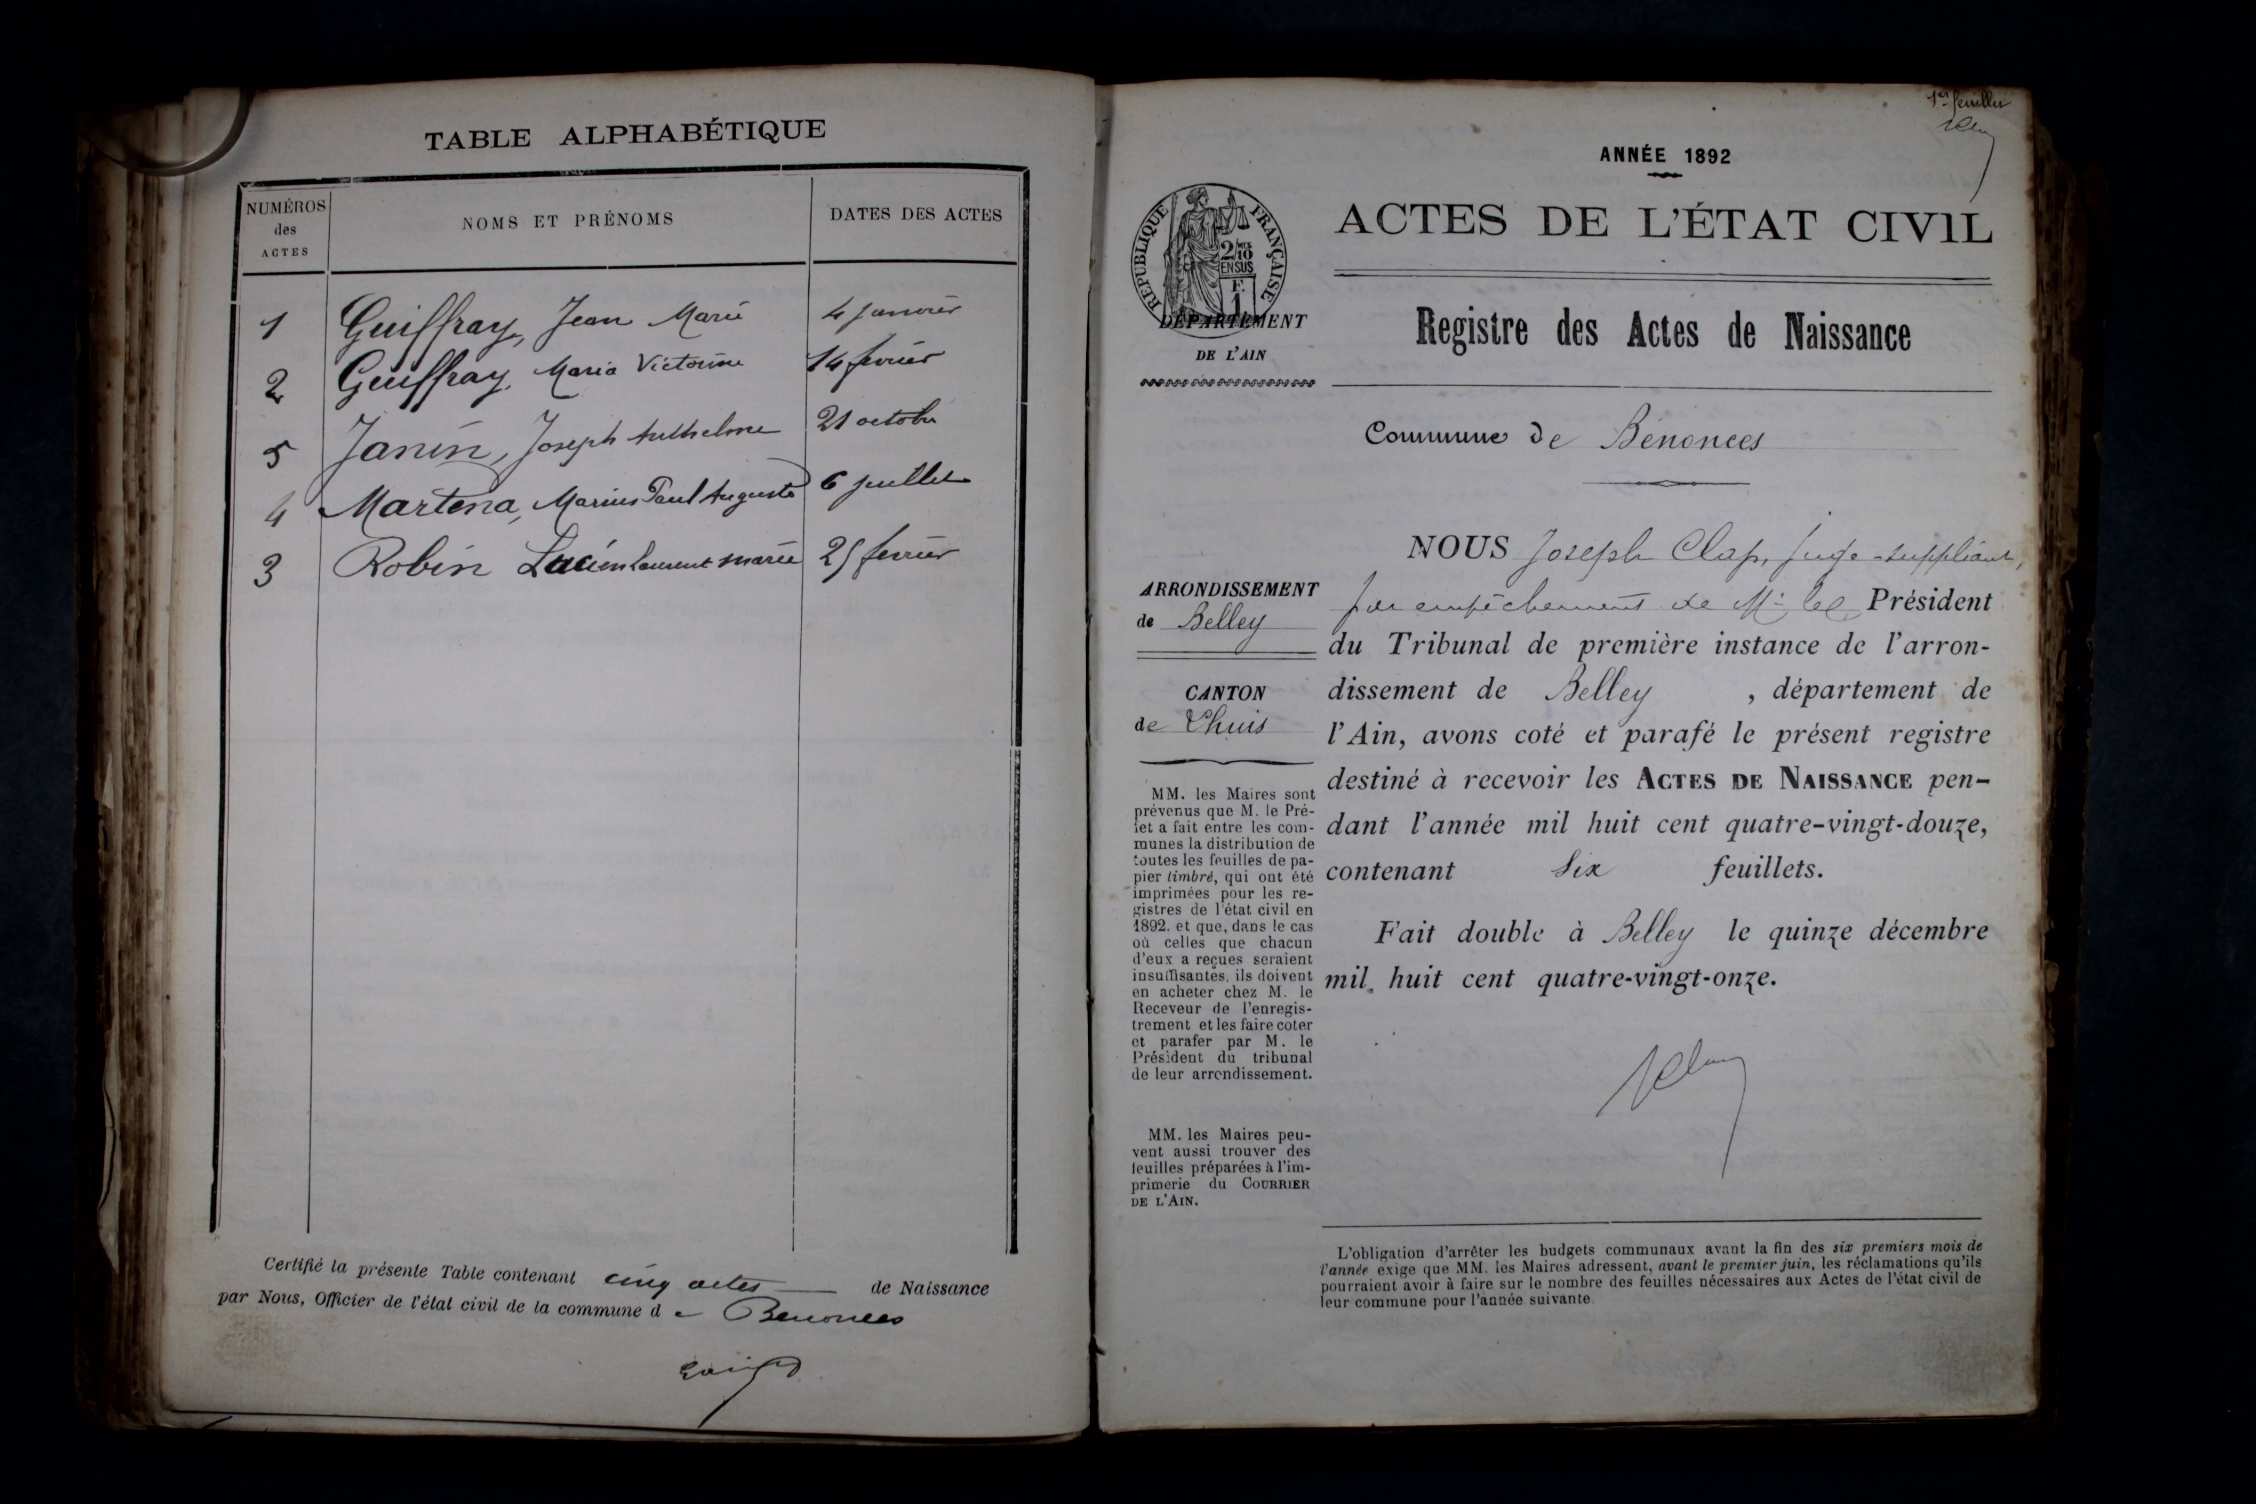 TABLE ALPHABÉTIQUE
NUMÉROS des ACTES NOMS ET PRÉNOMS DATES DES ACTES
1 Guiffray, Jean Marie 4 janvier
2 Guiffray, Maria Victorine 14 février
5 Janin, Joseph Anthelme 21 octobre
4 Martena, Marius Paul Auguste 6 juillet
3 Robin Lucien Laurent marie 25 fevrier
Certifié la présente Table contenant cinq actes de Naissance
par Nous, Officier de l'état civil de la commune de Benonces
1er feuillet
ANNÉE 1892
ACTES DE L'ÉTAT CIVIL
RÉPUBLIQUE FRANÇAISE
2/10 EN SUS
F 1
DÉPARTEMENT
DE L'AIN
Registre des Actes de Naissance
Commune de Bénonces
ARRONDISSEMENT
de Belley
CANTON
de Lhuis
MM. les Maires sont
prévenus que M. le Pré-
fet a fait entre les com-
munes la distribution de
toutes les feuilles de pa-
pier timbré, qui ont été
imprimées pour les re-
gistres de l'état civil en
1892. et que, dans le cas
où celles que chacun
d'eux a reçues seraient
insuffisantes, ils doivent
en acheter chez M. le
Receveur de l'enregis-
trement et les faire coter
et parafer par M. le
Président du tribunal
de leur arrondissement.
MM. les Maires peu-
vent aussi trouver des
feuilles préparées à l'im-
primerie du COURRIER
DE L'AIN.
NOUS Joseph Clap, juge-suppléant,
par empêchement de Mr le Président
du Tribunal de première instance de l'arron-
dissement de Belley, département de
l'Ain, avons coté et parafé le présent registre
destiné à recevoir les ACTES DE NAISSANCE pen-
dant l'année mil huit cent quatre-vingt-douze,
contenant Six feuillets.
Fait double à Belley le quinze décembre
mil huit cent quatre-vingt-onze.
L'obligation d'arrêter les budgets communaux avant la fin des six premiers mois de
l'année exige que MM. les Maires adressent, avant le premier juin, les réclamations qu'ils
pourraient avoir à faire sur le nombre des feuilles nécessaires aux Actes de l'état civil de
leur commune pour l'année suivante.